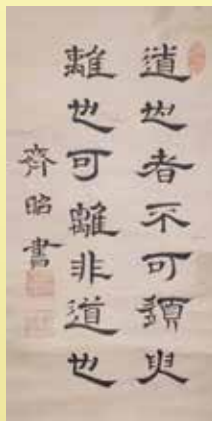 道也者不可須臾
離也可離非道也
齊昭書